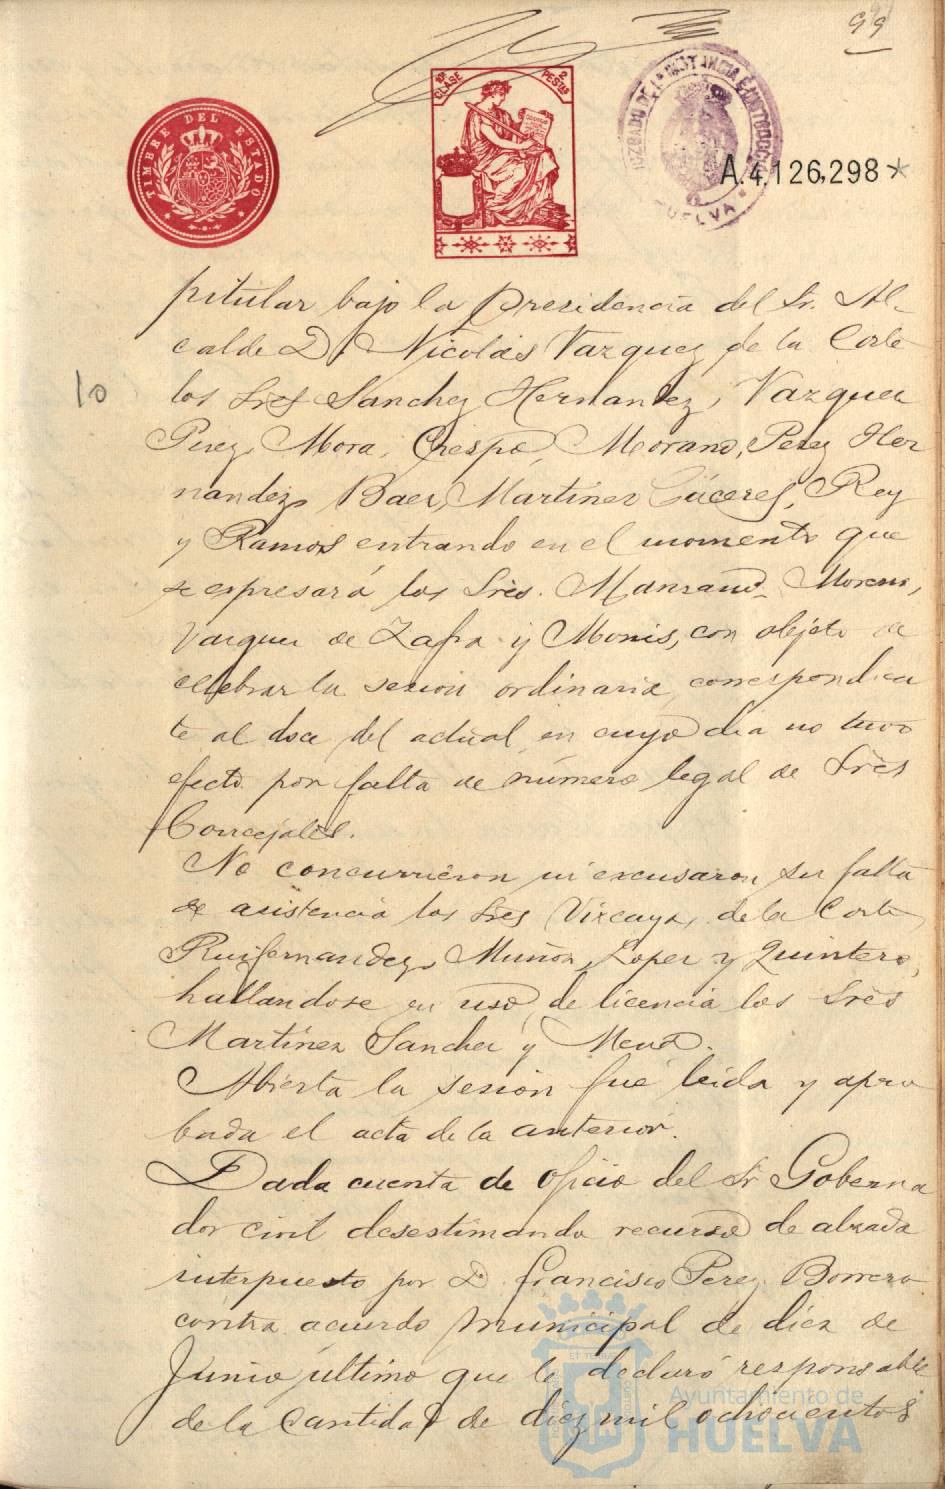 99
TIMBRE DEL ESTADO
10ª CLASE
2 PESETAS
JUZGADO DE 1ª INSTANCIA É INSTRUCCION
HUELVA
A.4,126,298*
pitular bajo la Presidencia del Sr. Al-
calde D. Nicolás Vazquez de la Corte
10
los Sres Sanchez Hernandez, Vazquez
Perez, Mora, Crespo, Morano, Perez Her
nandez, Baez, Martinez Cáceres, Rey
y Ramos entrando en el momento que
se espresará los Srès. Manzano, Moreno,
Vazquez de Zafra y Monis, con objeto de
celebrar la sesion ordinaria correspondien
te al doce del actual en cuyo dia no tuvo
efecto por falta de número legal de Srès
Concejales.
No concurrieron ni excusaron su falta
de asistencia los Srès Vizcaya, de la Corte,
Ruifernandez, Muñoz, Lopez y Quintero,
hallandose en uso de licencia los Srès
Martinez Sanchez y Mena.
Abierta la sesion fué leida y apro
bada el acta de la anterior.
Dada cuenta de oficio del Sr Goberna
dor civil desestimando recurso de alzada
interpuesto por D. Francisco Perez Borrero
contra acuerdo municipal de diez de
Junio último que le declaró responsable
de la cantidad de diez mil ochocientos
Ayuntamiento de
HUELVA